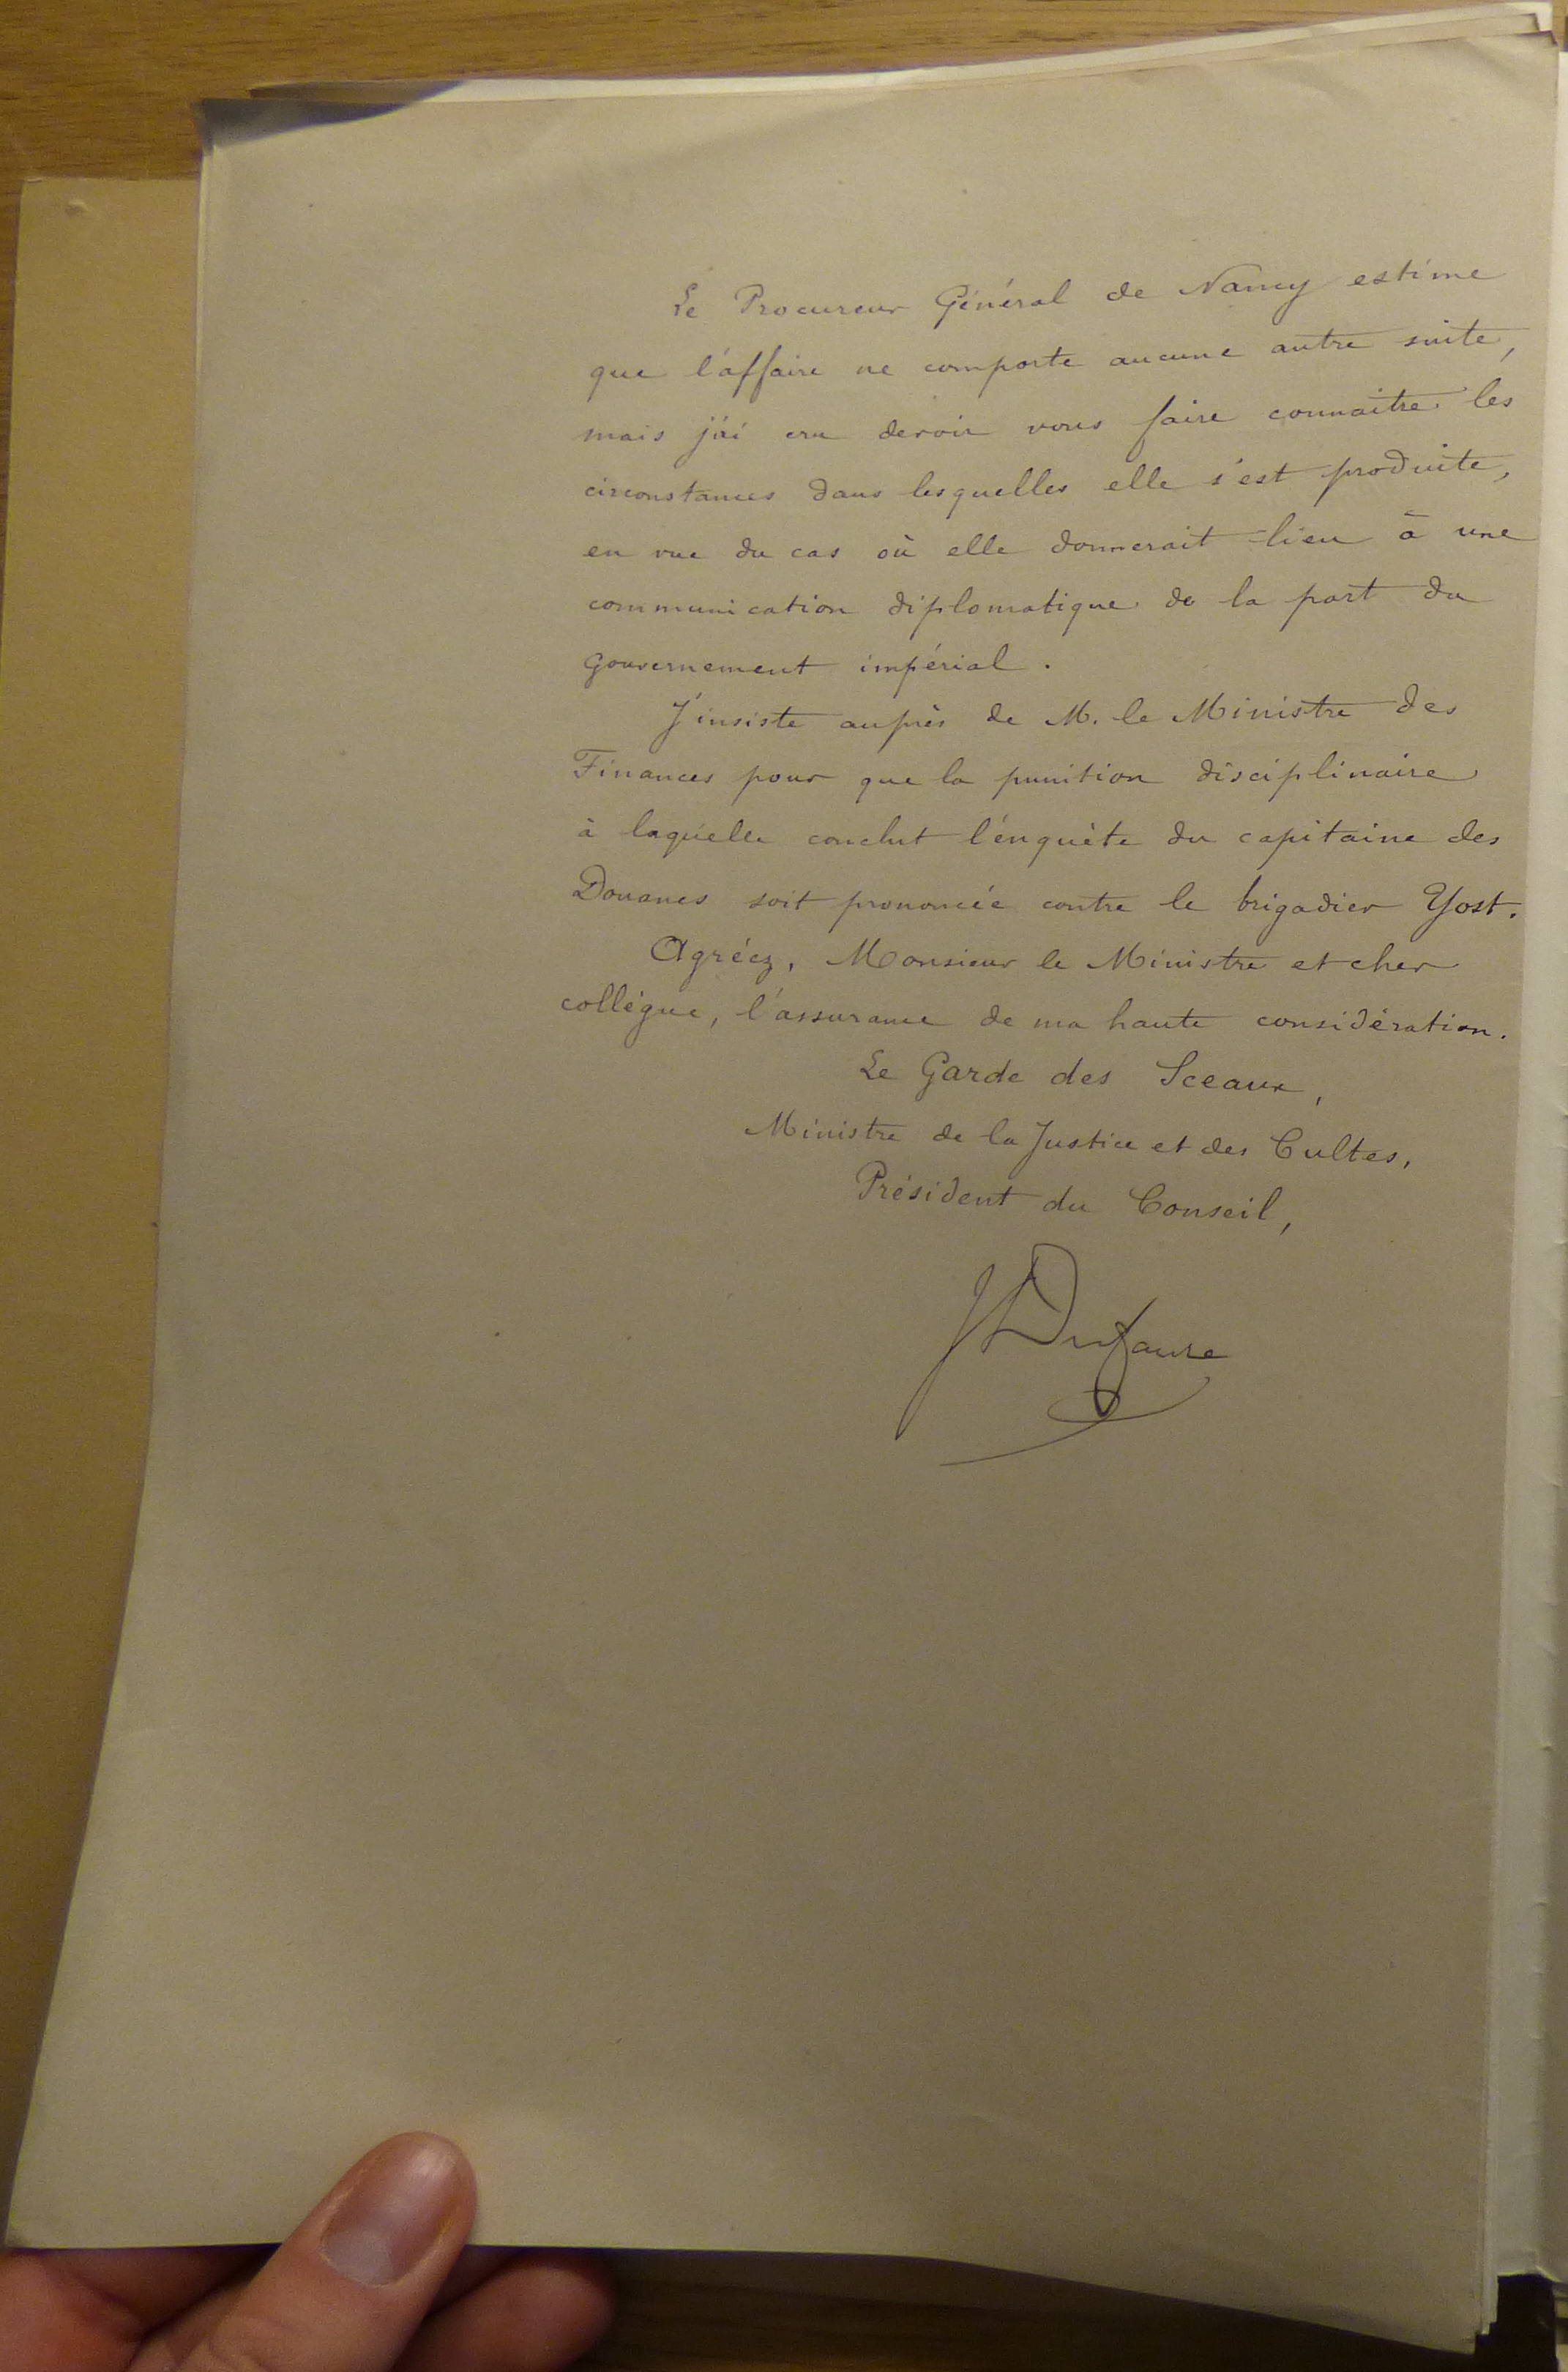 Le Procureur Général de Nancy estime
que l'affaire ne comporte aucune autre suite,
mais j'ai cru devoir vous faire connaitre les
circonstances dans lesquelles elle s'est produite,
en vue du cas où elle donnerait lieu à une
communication diplomatique de la part du
gouvernement impérial.
J'insiste auprès de M. le Ministre des
Finances pour que la punition disciplinaire
à laquelle conclut l'enquête du capitaine des
Douanes soit prononcée contre le brigadier Yost.
Agréez, Monsieur le Ministre et cher
collègue, l'assurance de ma haute considération.
Le Garde des Sceaux,
Ministre de la Justice et des Cultes,
Président du Conseil,
J Dufaure